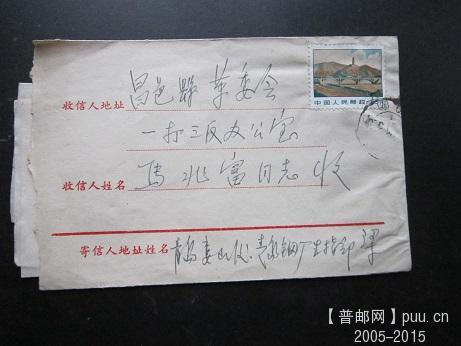 中国人民邮政
收信人地址 昌邑县革委会
一打三反办公室
收信人姓名 马兆富同志收
寄信人地址姓名 青岛娄山后
【普邮网】puu.cn
2005-2015